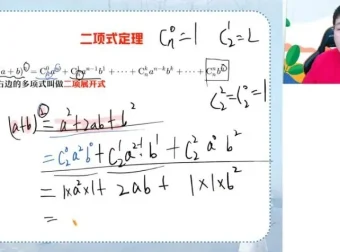 二项式定理
C_n^0=1 C_2^1=2
(a+b)^n=C_n^0a^n+C_n^1a^{n-1}b^1+⋯+C_n^ka^{n-k}b^k+⋯+C_n^nb^n
右边的多项式叫做二项展开式
C_2^2=C_2^0=1
(a+b)^2=a^2+2ab+b^2
=C_2^0a^2b^0+C_2^1a^{2-1}·b^1+C_2^2a^0b^2
=1×a^2×1+2ab+1×1×b^2
=